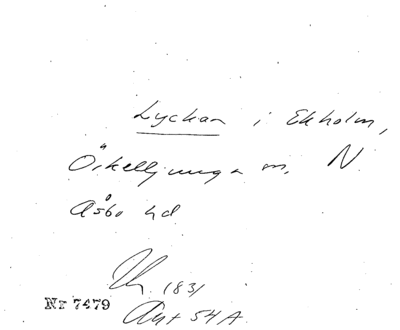 Lyckan i Ekholm,
Örkelljunga sn. N.
Åsbo hd
1831
Nr 7479
Akt 54 A